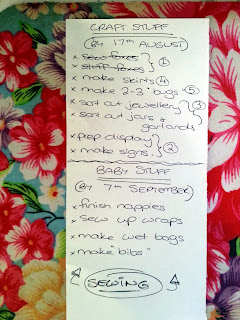 CRAFT STUFF
(BY 17TH AUGUST)
x sew foxes
x stuff foxes } ①
x make skirts ④
x make 2-3 bags ⑤
x sort out jewellery
x sort out jars & garlands } ③
x prep display
x make signs. } ②
BABY STUFF
(BY 7TH SEPTEMBER)
x finish nappies
x sew up wraps
x make wet bags
x make "bibs"
SEWING